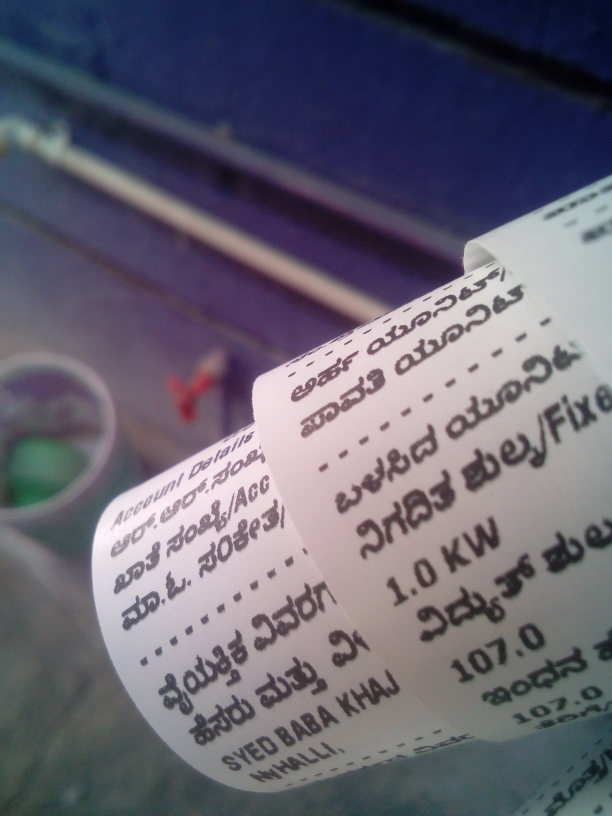 Account Details
ಆರ್.ಆರ್.ಸಂಖ್ಯೆ
ಖಾತೆ ಸಂಖ್ಯೆ/Acc
ಮಾ.ಓ. ಸಂಕೇತ/
ವೈಯಕ್ತಿಕ ವಿವರಗ
ಹೆಸರು ಮತ್ತು
SYED BABA KHAJ
HALLI,
ಅರ್ಹ ಯೂನಿಟ್/
ಪಾವತಿ ಯೂನಿಟ್
ಬಳಸಿದ ಯೂನಿಟ
ನಿಗದಿತ ಶುಲ್ಕ/Fixe
1.0 KW
ವಿದ್ಯುತ್ ಶುಲ
107.0
ಇಂಧನ
107.0